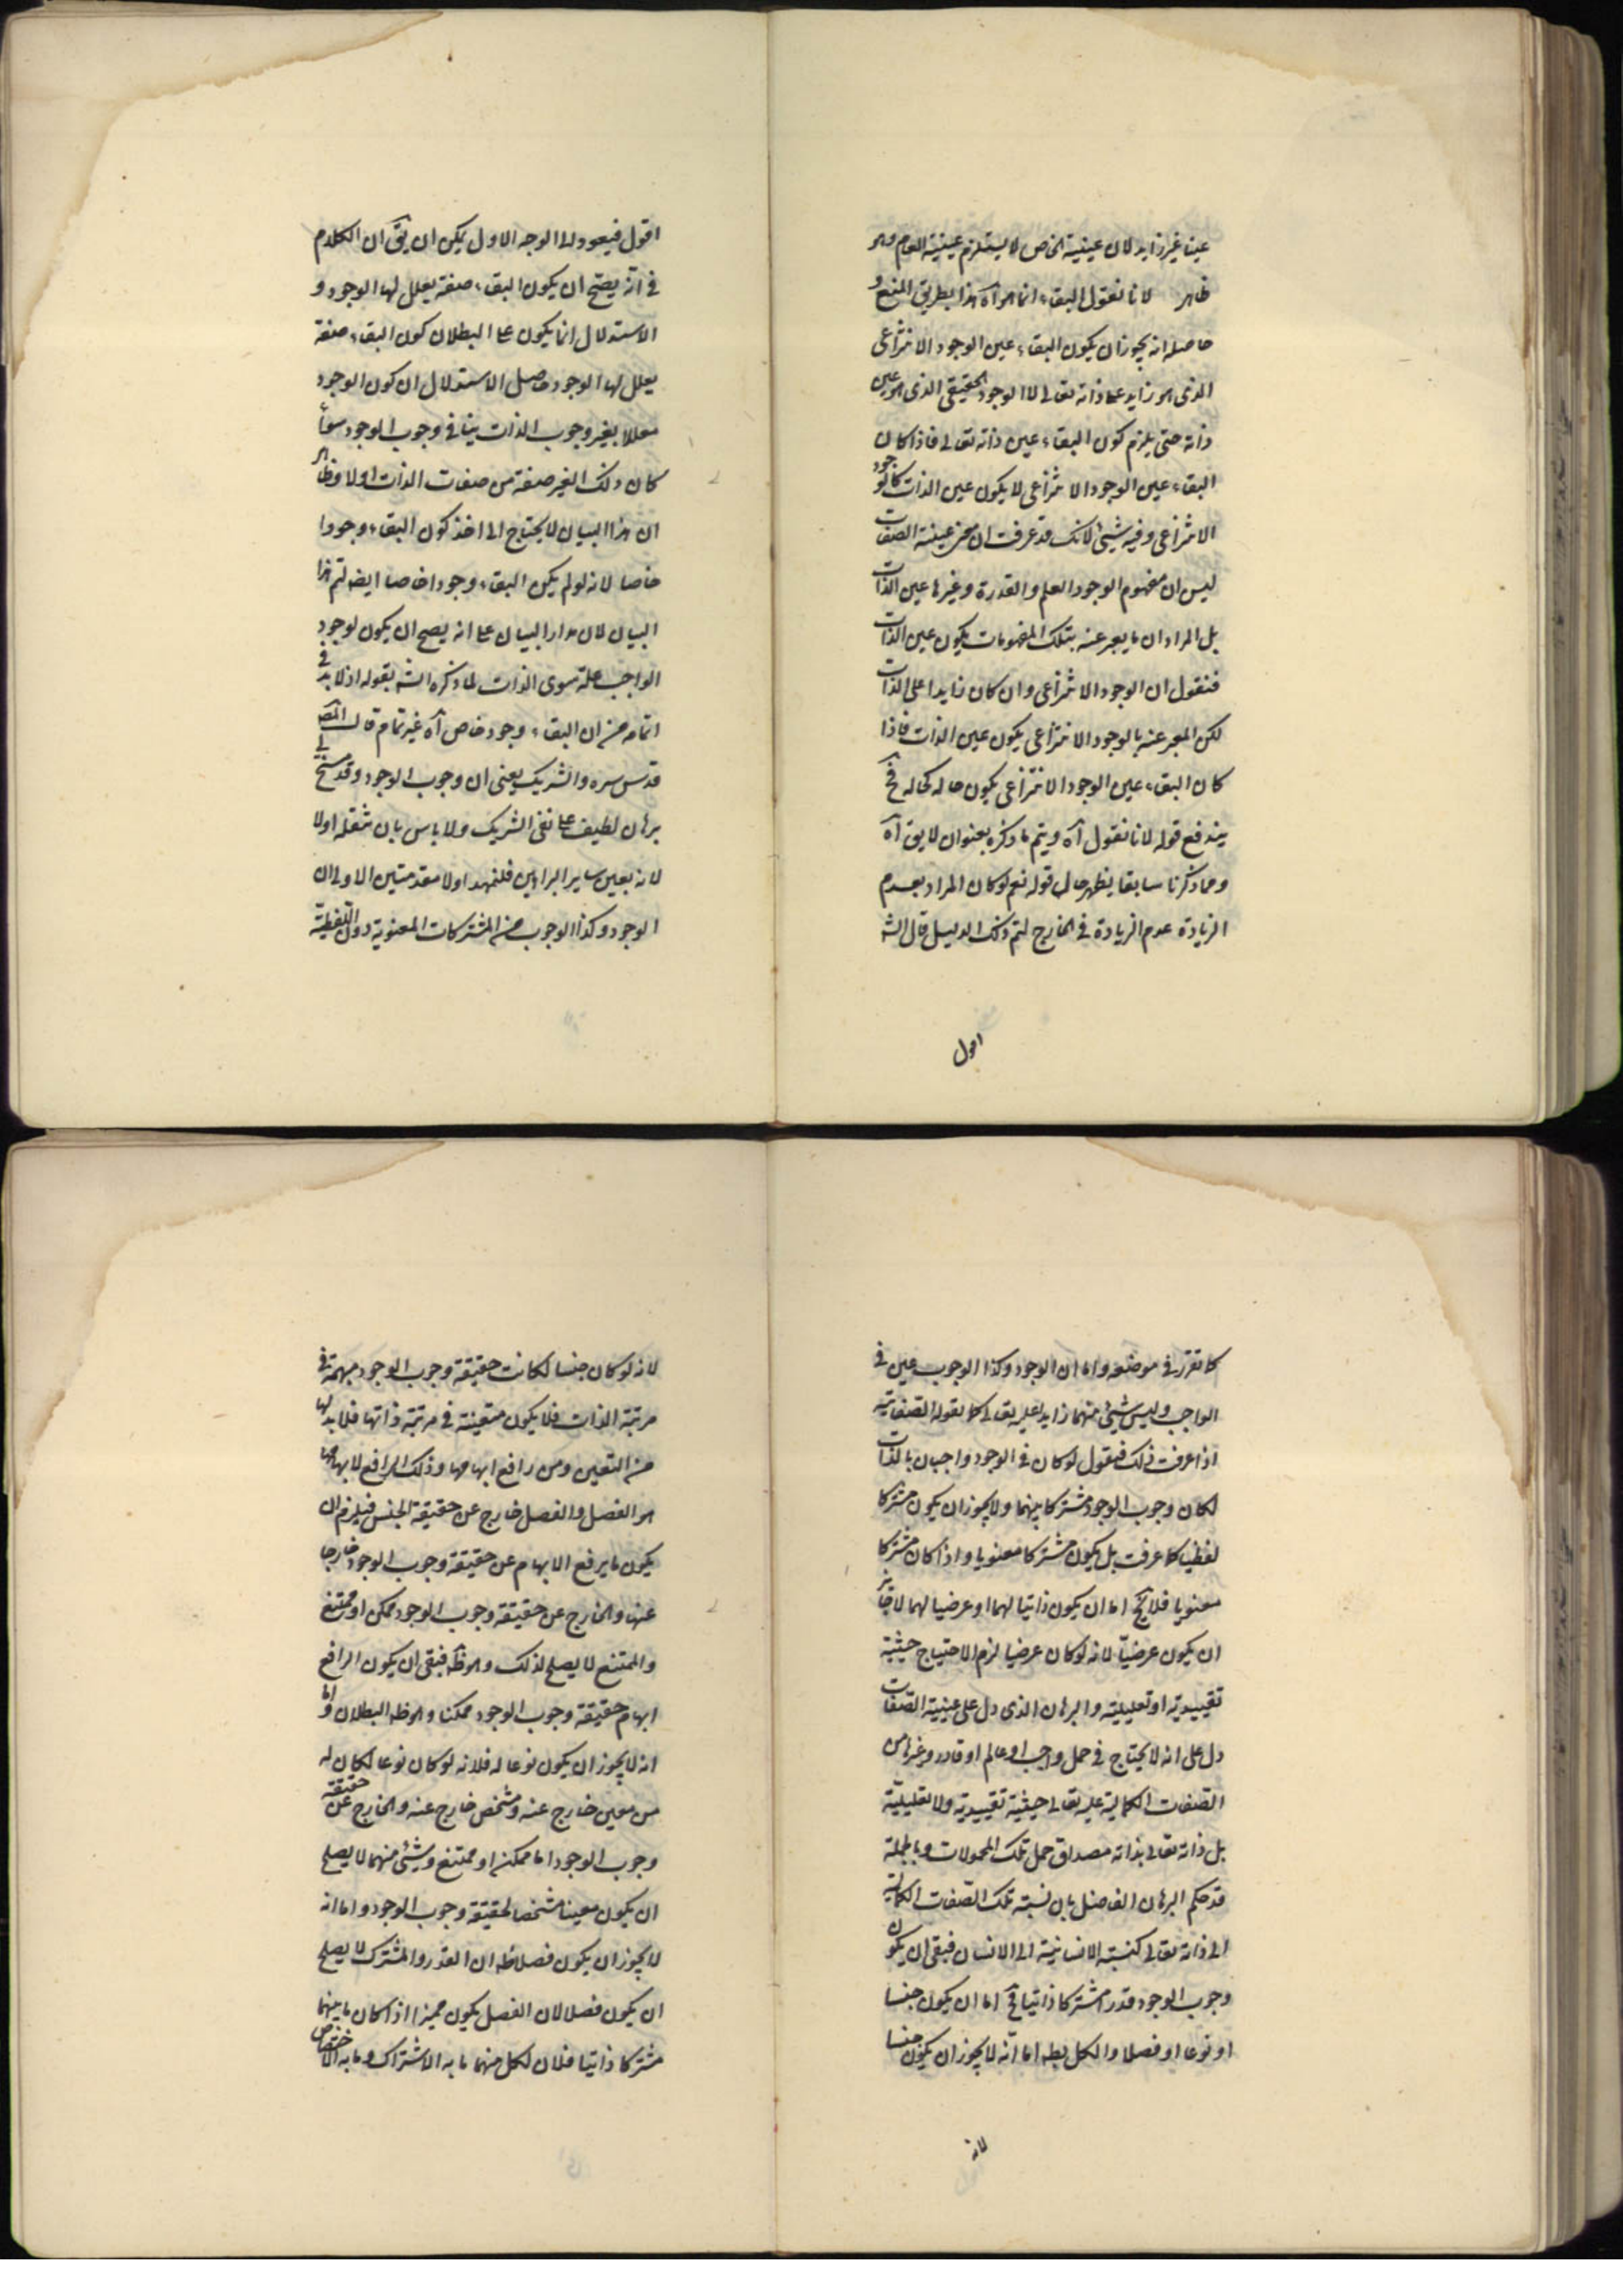 عينا غير زايد لان عينية الخاص لا يستلزم عينية العام وهو
ظاهر لانا نقول البقاء انما هو آه هذا بطريق المنع و
حاصله انه يجوز ان يكون البقاء عين الوجود الانتزاعى
الذى هو زايد على ذاته تعالى لا الوجود الحقيقى الذى هو عين
ذاته حتى يلزم كون البقاء عين ذاته تعالى فاذا كان
البقاء عين الوجود الانتزاعى لا يكون عين الذات كالوجود
الانتزاعى وفيه شيئ لانك قد عرفت ان معنى عينية الصفات
ليس ان مفهوم الوجود والعلم والقدرة وغيرها عين الذات
بل المراد ان ما يعبر عنه بتلك المفهومات يكون عين الذات
فنقول ان الوجود الانتزاعى وان كان زايدا على الذات
لكن المعبر عنه بالوجود الانتزاعى يكون عين الذات فاذا
كان البقاء عين الوجود الانتزاعى يكون حاله كحاله فح
يندفع قوله لانا نقول آه ويتم ما ذكره بعنوان لا يق آه
ومما ذكرنا سابقا يظهر حال قوله نعم لو كان المراد بعدم
الزيادة عدم الزيادة فى الخارج لتم ذلك الدليل قال الشه
اقول
اقول فيعود الى الوجه الاول يمكن ان يق ان الكلام
فى انه يصح ان يكون البقاء صفة يعلل لها الوجود و
الاستدلال انما يكون على البطلان كون البقاء صفة
يعلل لها الوجود حاصل الاستدلال ان كون الوجود
معللا بغير وجوب الذات ينافى وجوب الوجود سواء
كان ذلك الغير صفة من صفات الذات اولا وظاهر
ان هذا البيان لا يحتاج الى اخذ كون البقاء وجودا
خاصا لانه لو لم يكن البقاء وجودا خاصا ايضه لتم هذا
البيان لان مدار البيان على انه يصح ان يكون لوجود
الواجب علة سوى الذات لما ذكره الشه بقوله اذ لا بد فى
اتمامه من ان البقاء وجود خاص آه غير تمام قال المصه
قدس سره والشريك يعنى ان وجوب الوجود وقد سنح لى
برهان لطيف على نفى الشريك ولا باس بان ننقله اولا
لانه بعين ساير البراهين فلنمهد اولا مقدمتين الاولى ان
الوجود وكذا الوجوب من المشتركات المعنوية دون اللفظية
كما تقرر فى موضعه واما ان الوجود وكذا الوجوب عين فى
الواجب وليس شيئ منهما زايدا عليه تعالى كما يقوله الصفاتيه
اذا عرفت ذلك فنقول لو كان فى الوجود واجبان بالذات
لكان وجوب الوجود مشتركا بينهما ولا يجوز ان يكون مشتركا
لفظيا كما عرفت بل يكون مشتركا معنويا واذا كان مشتركا
معنويا فلا يخ اما ان يكون ذاتيا لهما او عرضيا لهما لا جائز
ان يكون عرضيا لانه لو كان عرضيا لزم الاحتياج حيثية
تقييدية او تعليلية والبرهان الذى دل على عينية الصفات
دل على انه لا يحتاج فى حمل واجب او عالم او قادر وغيرها من
الصفات الكمالية عليه تعالى حيثية تقييدية ولا تعليلية
بل ذاته تعالى بذاته مصداق حمل تلك المحمولات وبالجملة
قد حكم البرهان الفاصل بان نسبة تلك الصفات الكمالية
الى ذاته تعالى كنسبة الانسانية الى الانسان فبقى ان يكون
وجوب الوجود قدرا مشتركا ذاتيا فح اما ان يكون جنسا
او نوعا او فصلا والكل بطه اما انه لا يجوز ان يكون جنسا
لانه
لانه لو كان جنسا لكانت حقيقة وجوب الوجود مبهمة فى
مرتبة الذات فلا يكون متعينة فى مرتبة ذاتها فلا بد لها
من التعين ومن رافع ابهامها وذلك الرافع لابهامها
هو الفصل والفصل خارج عن حقيقة الجنس فيلزم ان
يكون ما يرفع الابهام عن حقيقة وجوب الوجود خارجا
عنها والخارج عن حقيقة وجوب الوجود ممكن او ممتنع
والممتنع لا يصلح لذلك وهو ظه فبقى ان يكون الرافع
ابهام حقيقة وجوب الوجود ممكنا وهو ظه البطلان واما
انه لا يجوز ان يكون نوعا له فلانه لو كان نوعا لكان له
من معين خارج عنه ومشخص خارج عنه والخارج عن حقيقة
وجوب الوجود اما ممكن او ممتنع وشيئ منهما لا يصلح
ان يكون معينا مشخصا لحقيقة وجوب الوجود واما انه
لا يجوز ان يكون فصلا فظه ان القدر والمشترك لا يصلح
ان يكون فصلا لان الفصل يكون مميزا اذا كان ما بينهما
مشتركا ذاتيا فلان لكل منهما ما به الاشتراك وما به الاختصاص